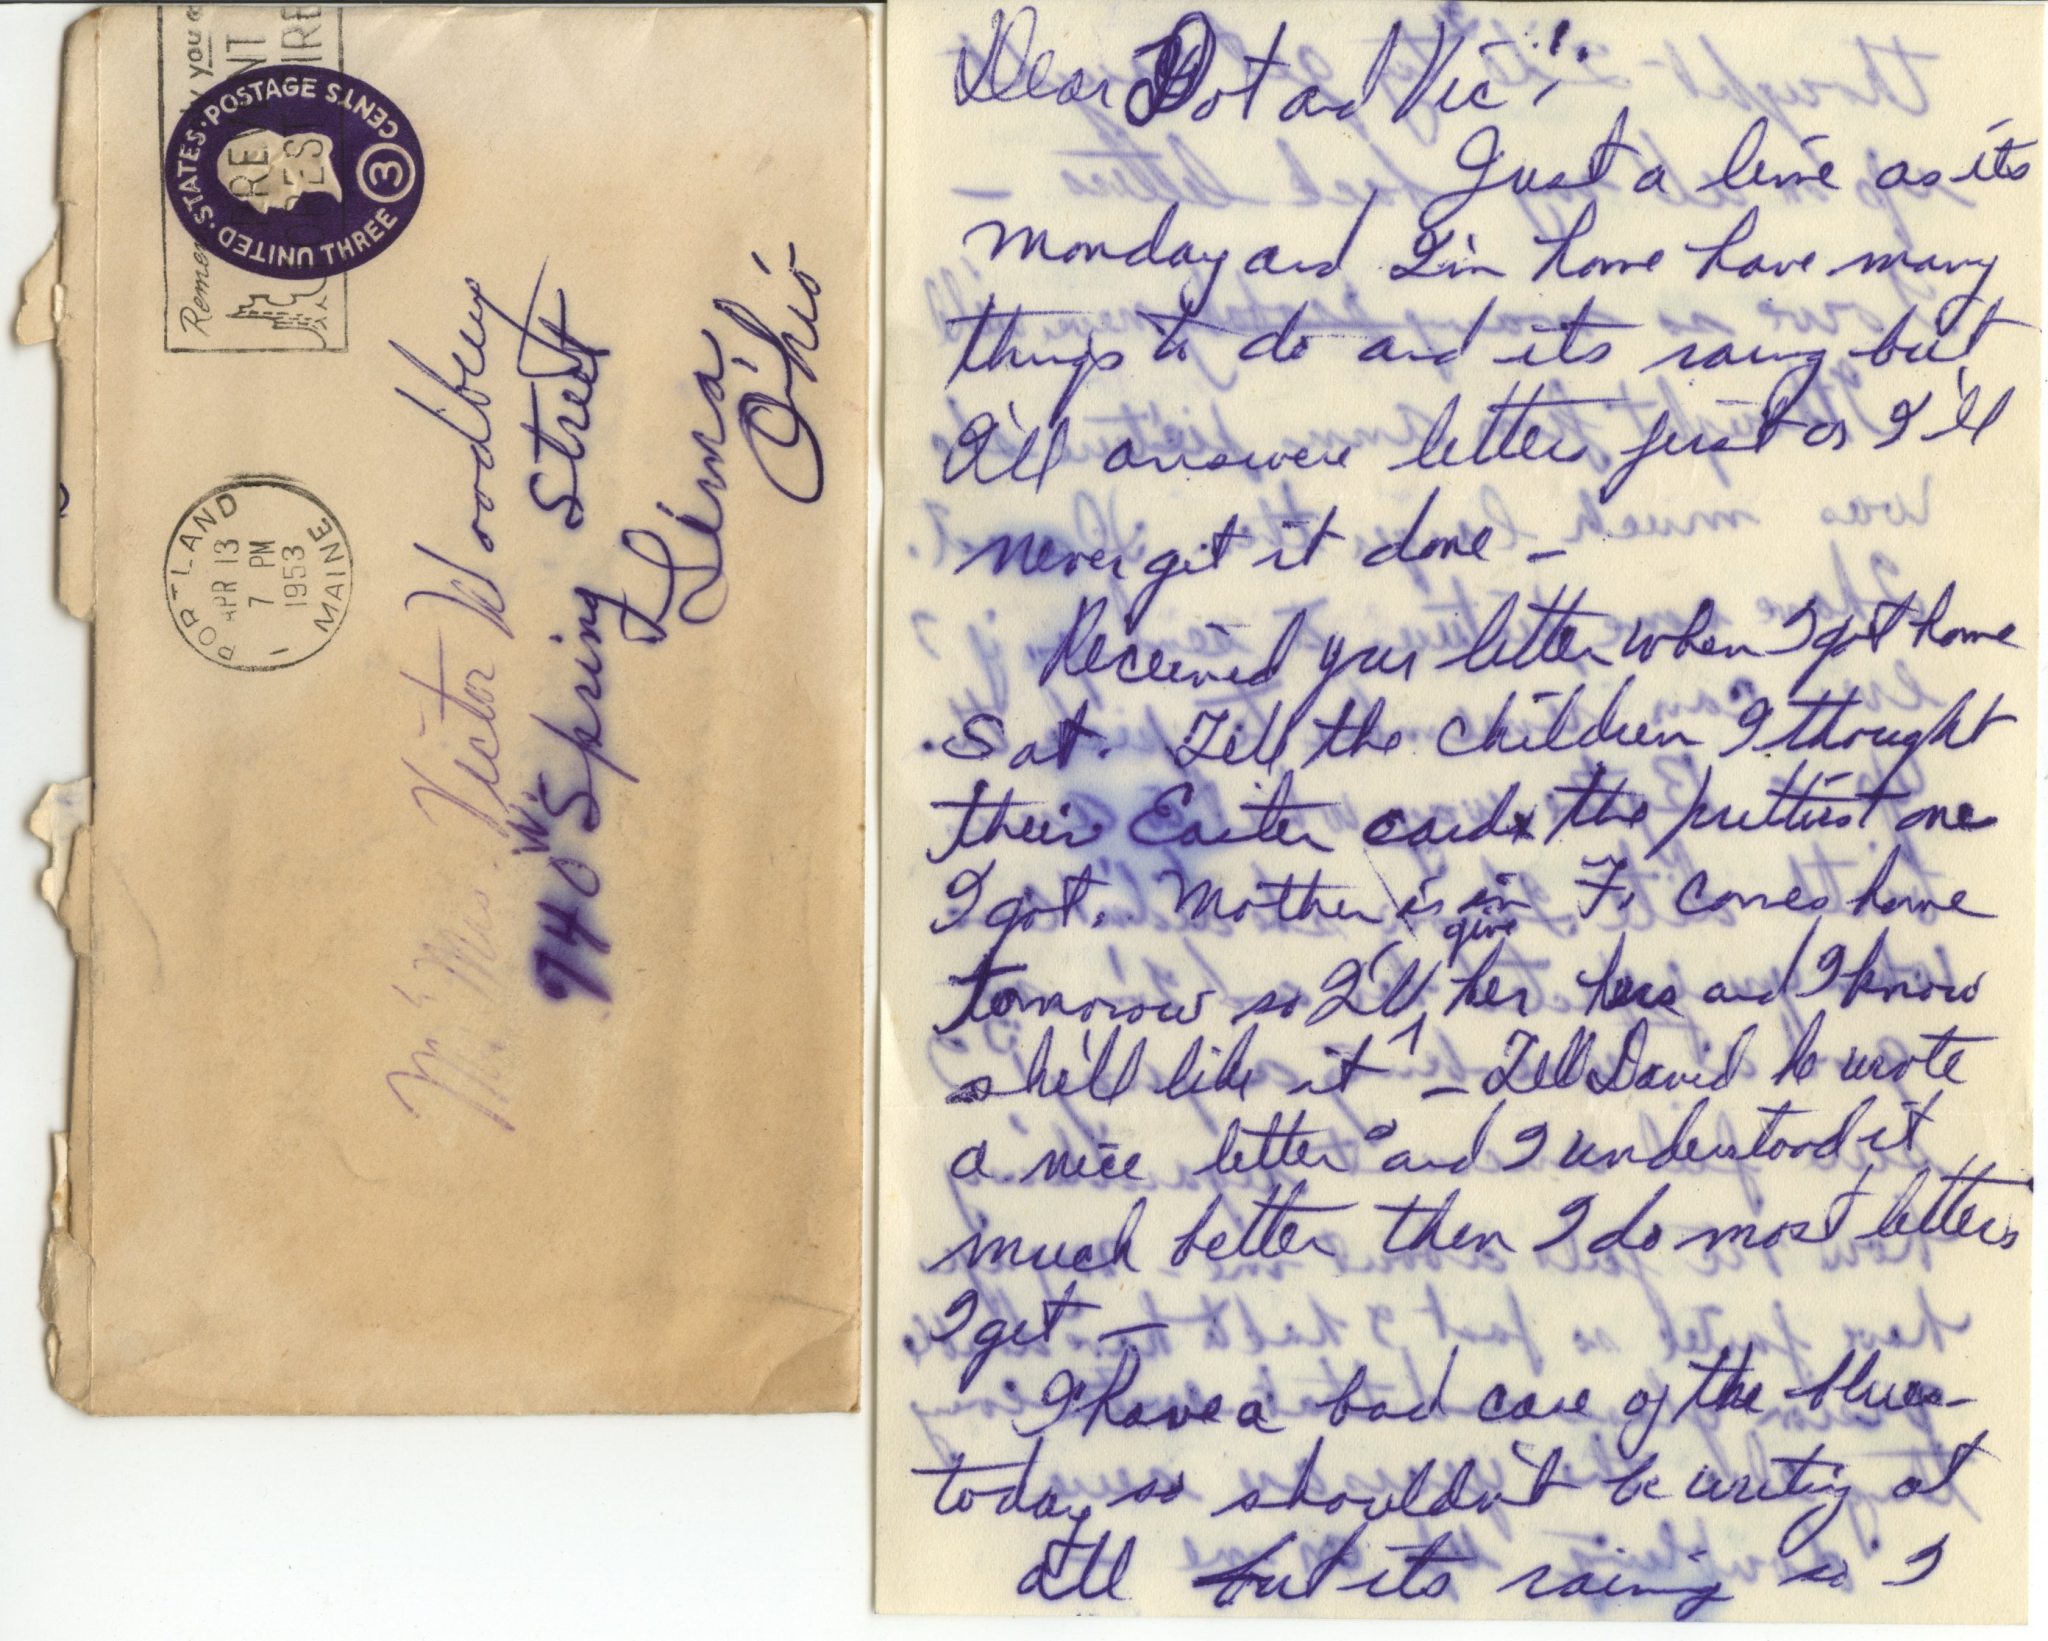 Remember you
PREVENT
FOREST FIRE
UNITED STATES · POSTAGE
THREE 3 CENTS
PORTLAND
APR 13
7 PM
1953
1 MAINE
Mr & Mrs. Victor Woodbury
940 W. Spring Street
Lima
Ohio
Dear Dot and Vic:
Just a line as its
Monday and I'm home have many
things to do and its raing but
I'll answere letters first or I'll
never git it done –
Received your letter when I got home
Sat. Tell the children I thought
their Easter cards the prettiest ones
I got. Mother is in F. comes home
tomorrow so I'll give her hers and I know
she'll like it – Tell David he wrote
a nice letter and I understood it
much better then I do most letters
I get –
I have a bad case of the blues
today so shouldn't be writing at
all but its raining so I